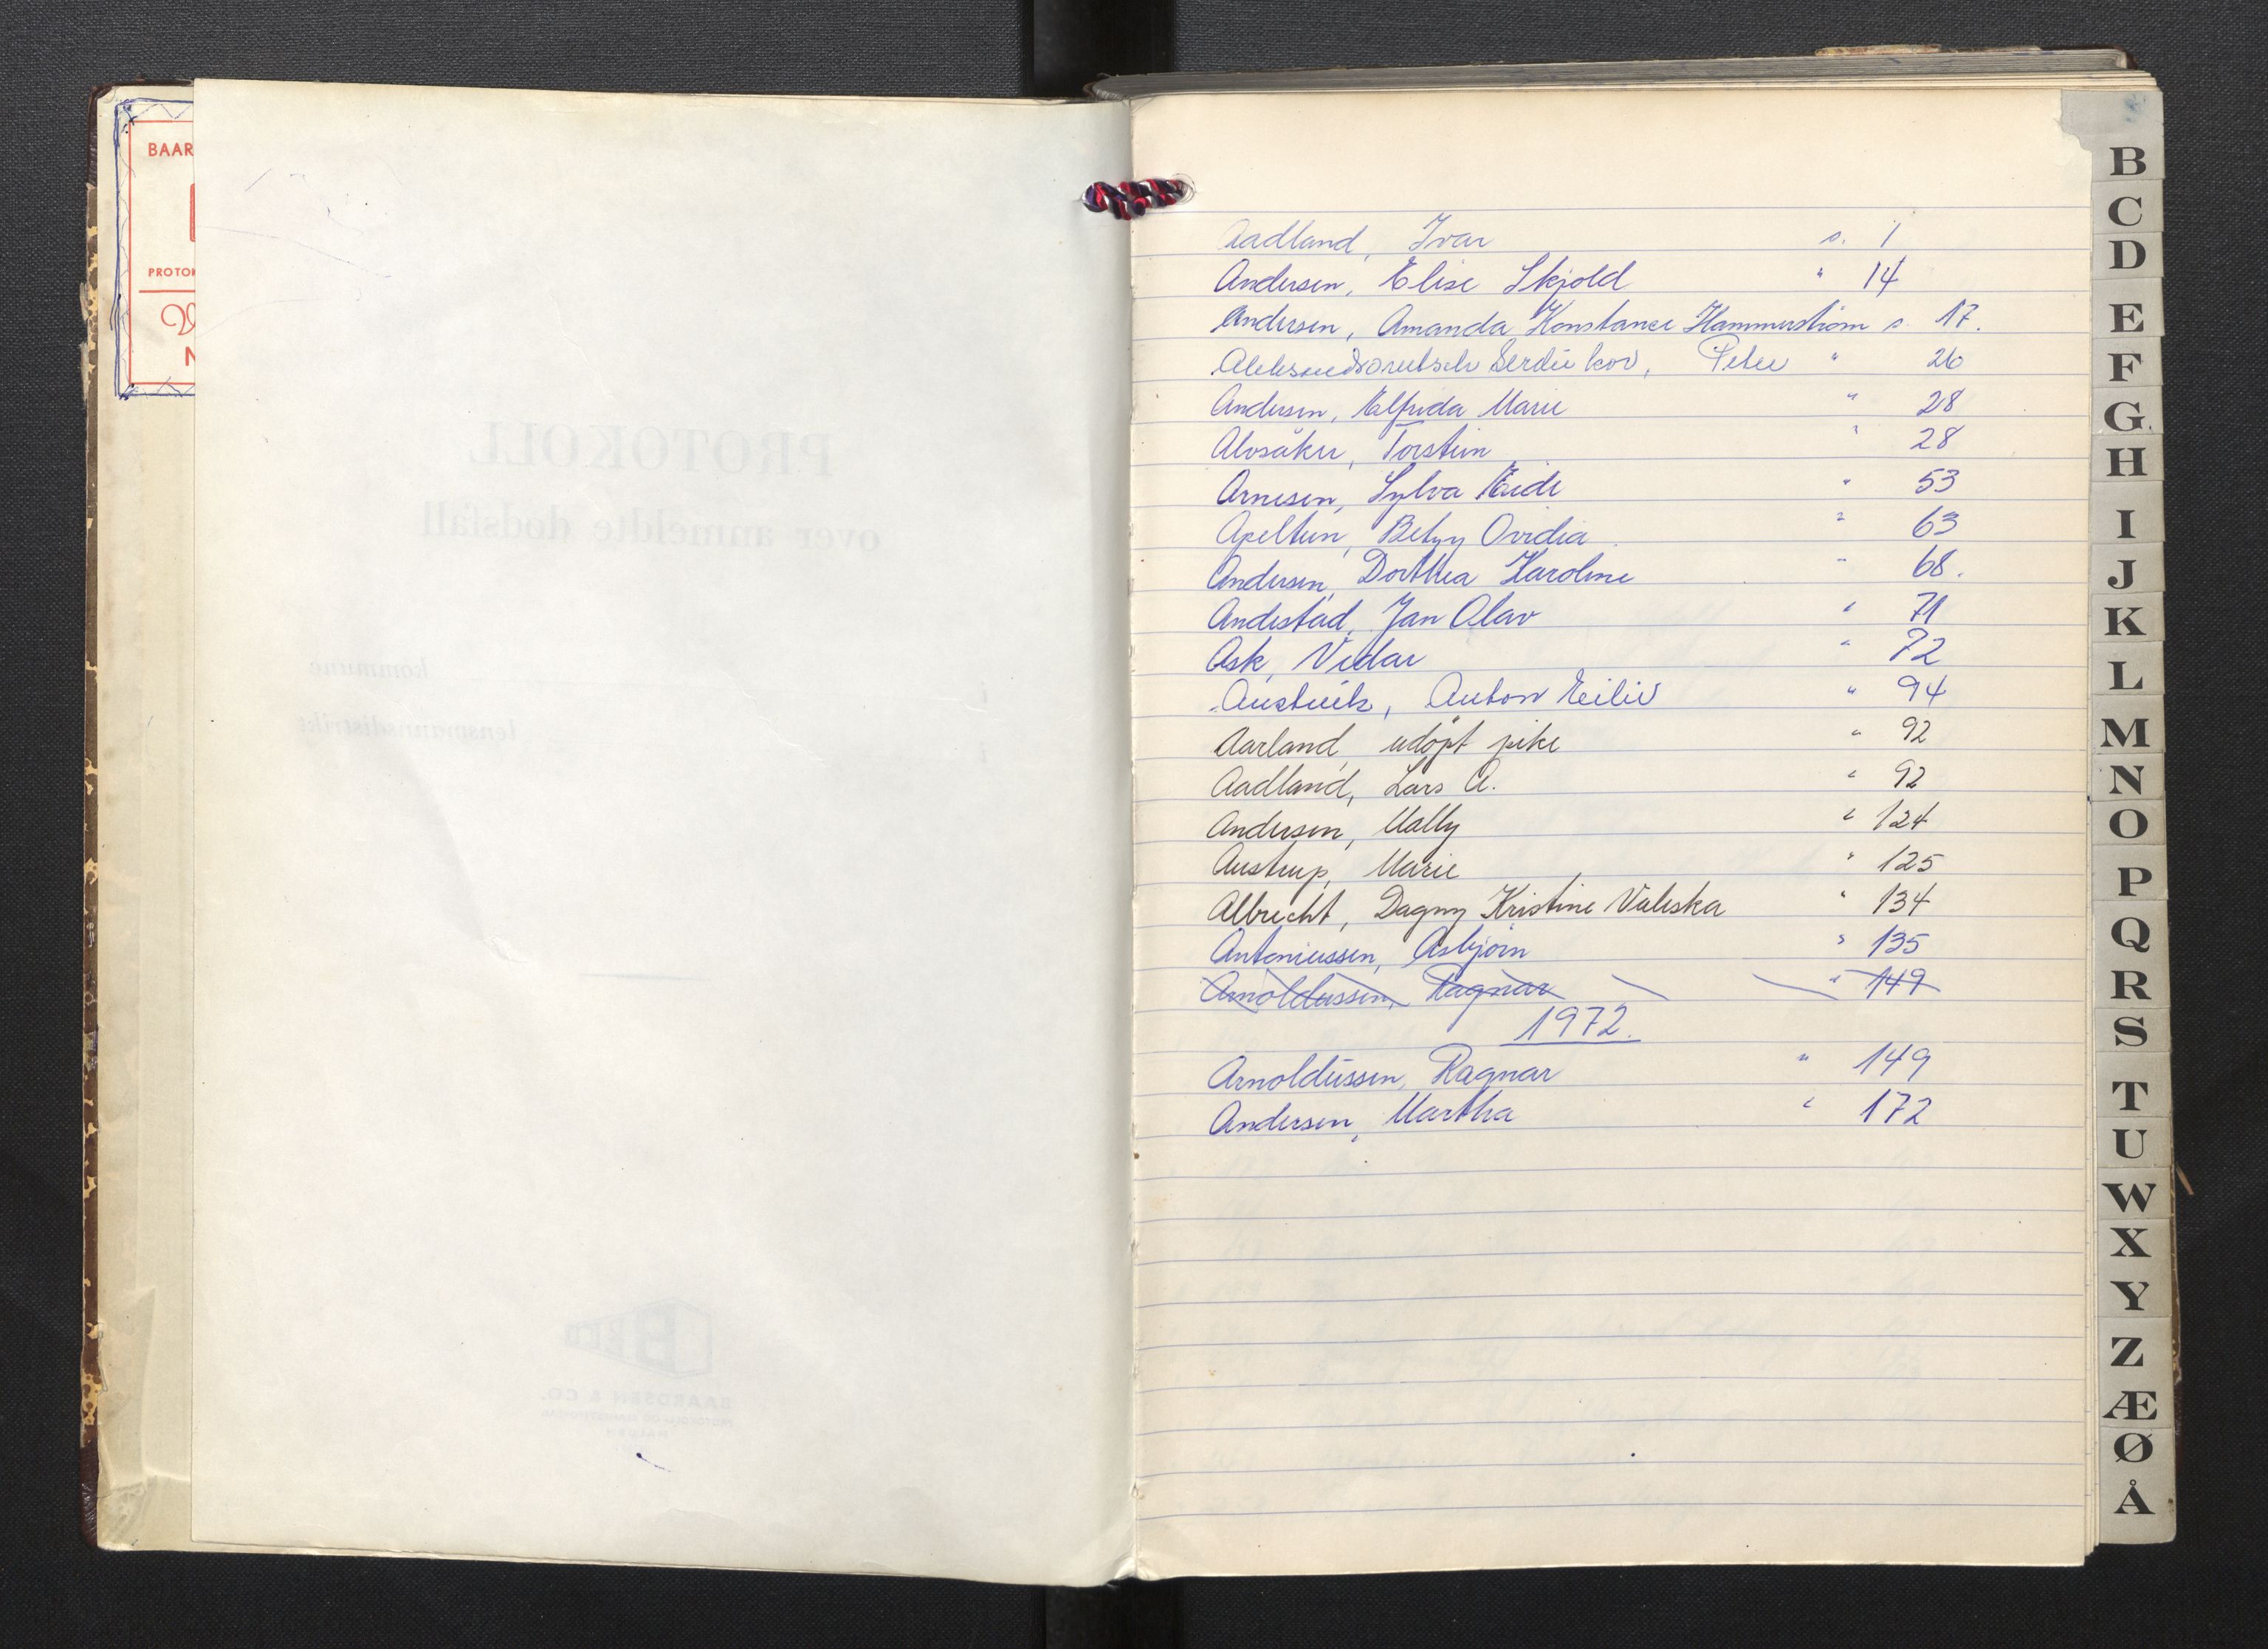 BAAR
PROTOK
N
PROTOKOLL
over anmeldte dødsfall
i kommune
i lensmannsdistrikt
BAARDSEN & CO.
HALDEN
Aadland, Ivar s. 1
Andersen, Elise Skjold " 14
Andersen, Amanda Konstance Hammerstrøm s. 17.
Serdükov, Peter " 26
Andersen, Elfrida Marie " 28
Alvsåker, Torstein " 28
Arnesen, Sylva Eide " 53
Apeltun, Betzy Ovidia " 63
Andersen, Dorthea Karoline " 68.
Andestad, Jan Olav " 71
Ask, Vidar " 72
Austvik, Anton Eiliv " 94
Aarland, udøpt pike " 92
Aadland, Lars A. " 92
Andersen, Mally " 124
Austrup, Marie " 125
Albrecht, Dagny Kristine Valeska " 134
Antoniussen, Asbjørn " 135
Arnoldussen, Ragnar " 149
1972.
Arnoldussen, Ragnar " 149
Andersen, Martha " 172
B
C
D
E
F
G
H
I
J
K
L
M
N
O
P
Q
R
S
T
U
W
X
Y
Z
Æ
Ø
Å